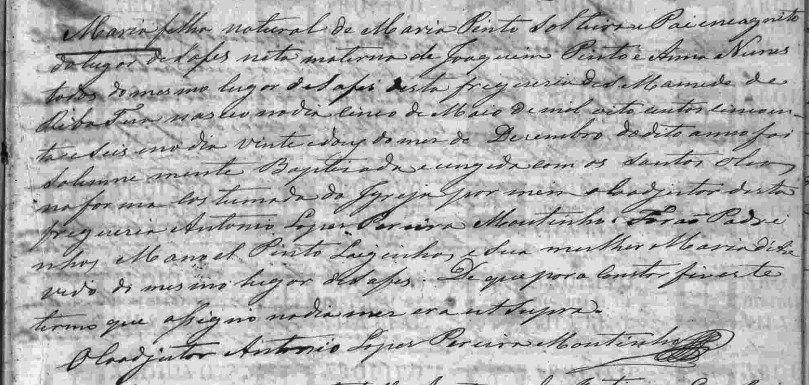 Maria filha natural de Maria Pinto Solteira e Pai encognito
do lugar de Safes neta materna de Joaquim Pinto e Anna Nunes
todos do mesmo lugar de Safes desta freguezia de S Mamede de
Riba Tua nasceo no dia cinco de Maio de mil oito centos e incoen
ta e seis e no dia vinte e dous do mes de Dezembro do dito anno foi
Solemne mente Baptizada e ungida com os Santos Oleos
na forma costumada da Igreja por mim o Coadjutor desta
freguezia Antonio Lopes Pereira Moutinho. Forão Padri
nhos Manoel Pinto e Sua mulher Maria d'Aze
vedo do mesmo lugar de Safes. De que para Constar fiz este
termo que assigno no dia mes era ut Supra.
O Coadjutor Antonio Lopes Pereira Moutinho